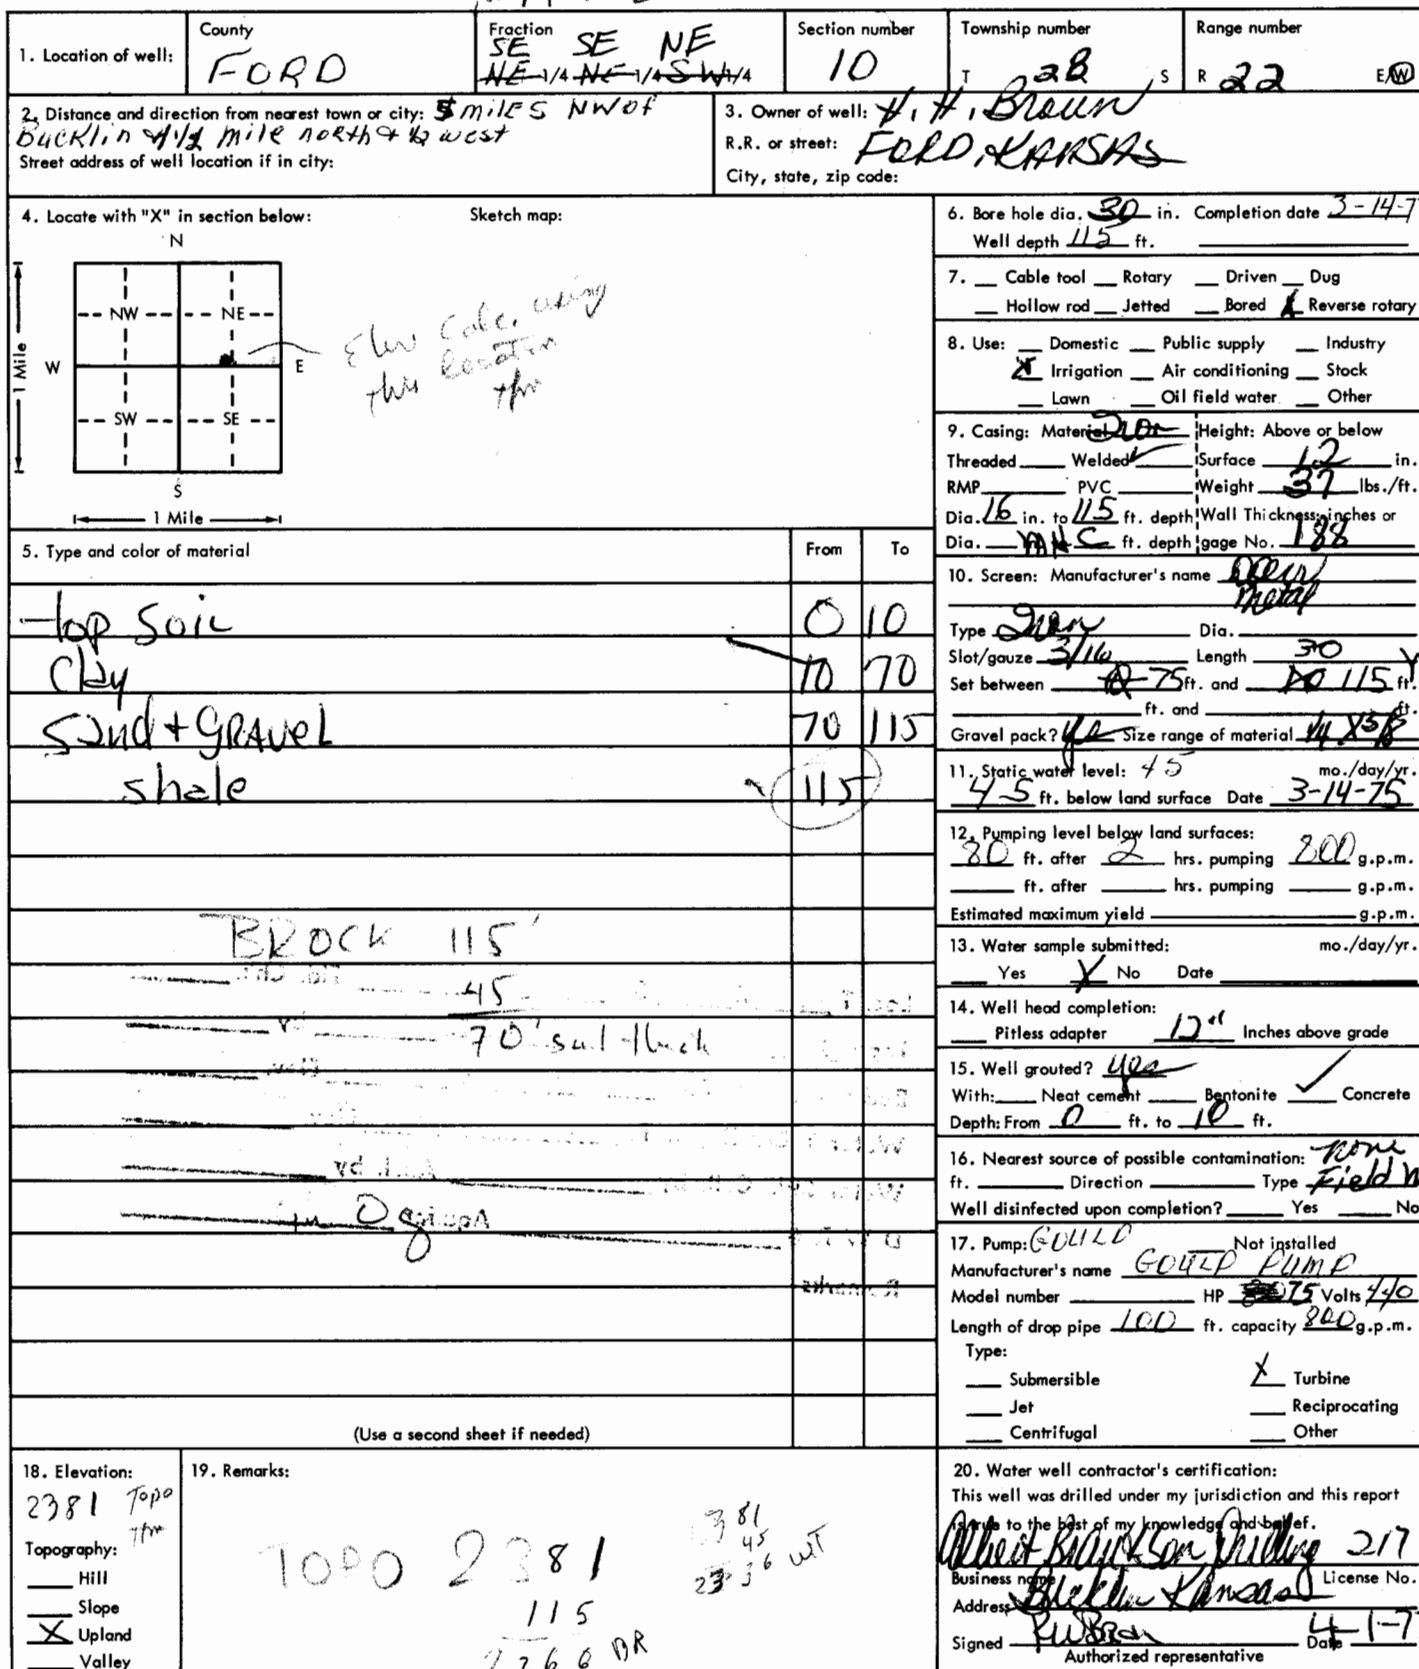 County
Fraction
Section number
Township number
Range number
1. Location of well:
FORD
SE SE NE
NE 1/4 NE 1/4 SW 1/4
10
T 28 S
R 22 E/W
2. Distance and direction from nearest town or city: 5 miles NW of
Bucklin 4 1/2 mile north & 1/2 west
Street address of well location if in city:
3. Owner of well: H. H. Broun
R.R. or street: FORD, KANSAS
City, state, zip code:
4. Locate with "X" in section below:
Sketch map:
N
NW NE
W E
SW SE
S
1 Mile
1 Mile
Elev Calc. using
this location
5. Type and color of material From To
top soil 0 10
Clay 10 70
Sand + GRAVEL 70 115
shale 115
BROCK 115'
45
70' sat thick
(Use a second sheet if needed)
6. Bore hole dia. 30 in. Completion date 3-14-7
Well depth 115 ft.
7. Cable tool Rotary Driven Dug
Hollow rod Jetted Bored X Reverse rotary
8. Use: Domestic Public supply Industry
X Irrigation Air conditioning Stock
Lawn Oil field water Other
9. Casing: Material Iron Height: Above or below
Threaded Welded ✓ Surface 12 in.
RMP PVC Weight 37 lbs./ft.
Dia. 16 in. to 115 ft. depth Wall Thickness: inches or
Dia. ft. depth gage No. 188
10. Screen: Manufacturer's name
metal
Type Iron Dia.
Slot/gauze 3/16 Length 30
Set between 75 ft. and 115 ft.
ft. and ft.
Gravel pack? yes Size range of material 1/4 X 3/8
11. Static water level: 45 mo./day/yr.
45 ft. below land surface Date 3-14-75
12. Pumping level below land surfaces:
80 ft. after 2 hrs. pumping 800 g.p.m.
ft. after hrs. pumping g.p.m.
Estimated maximum yield g.p.m.
13. Water sample submitted: mo./day/yr.
Yes X No Date
14. Well head completion:
Pitless adapter 12" Inches above grade
15. Well grouted? yes
With: Neat cement Bentonite ✓ Concrete
Depth: From 0 ft. to 10 ft.
16. Nearest source of possible contamination: none
ft. Direction Type Field
Well disinfected upon completion? Yes No
17. Pump: GOULD Not installed
Manufacturer's name GOULD PUMP
Model number HP 75 Volts 440
Length of drop pipe 100 ft. capacity 800 g.p.m.
Type:
Submersible X Turbine
Jet Reciprocating
Centrifugal Other
18. Elevation:
2381 Topo
Topography:
Hill
Slope
X Upland
Valley
19. Remarks:
TOPO 2381
115
2266 BR
2381
45
2336 WT
20. Water well contractor's certification:
This well was drilled under my jurisdiction and this report
is true to the best of my knowledge and belief.
Drilling 217
Business name License No.
Address Bucklin Kansas
Signed Date 4-1-7
Authorized representative